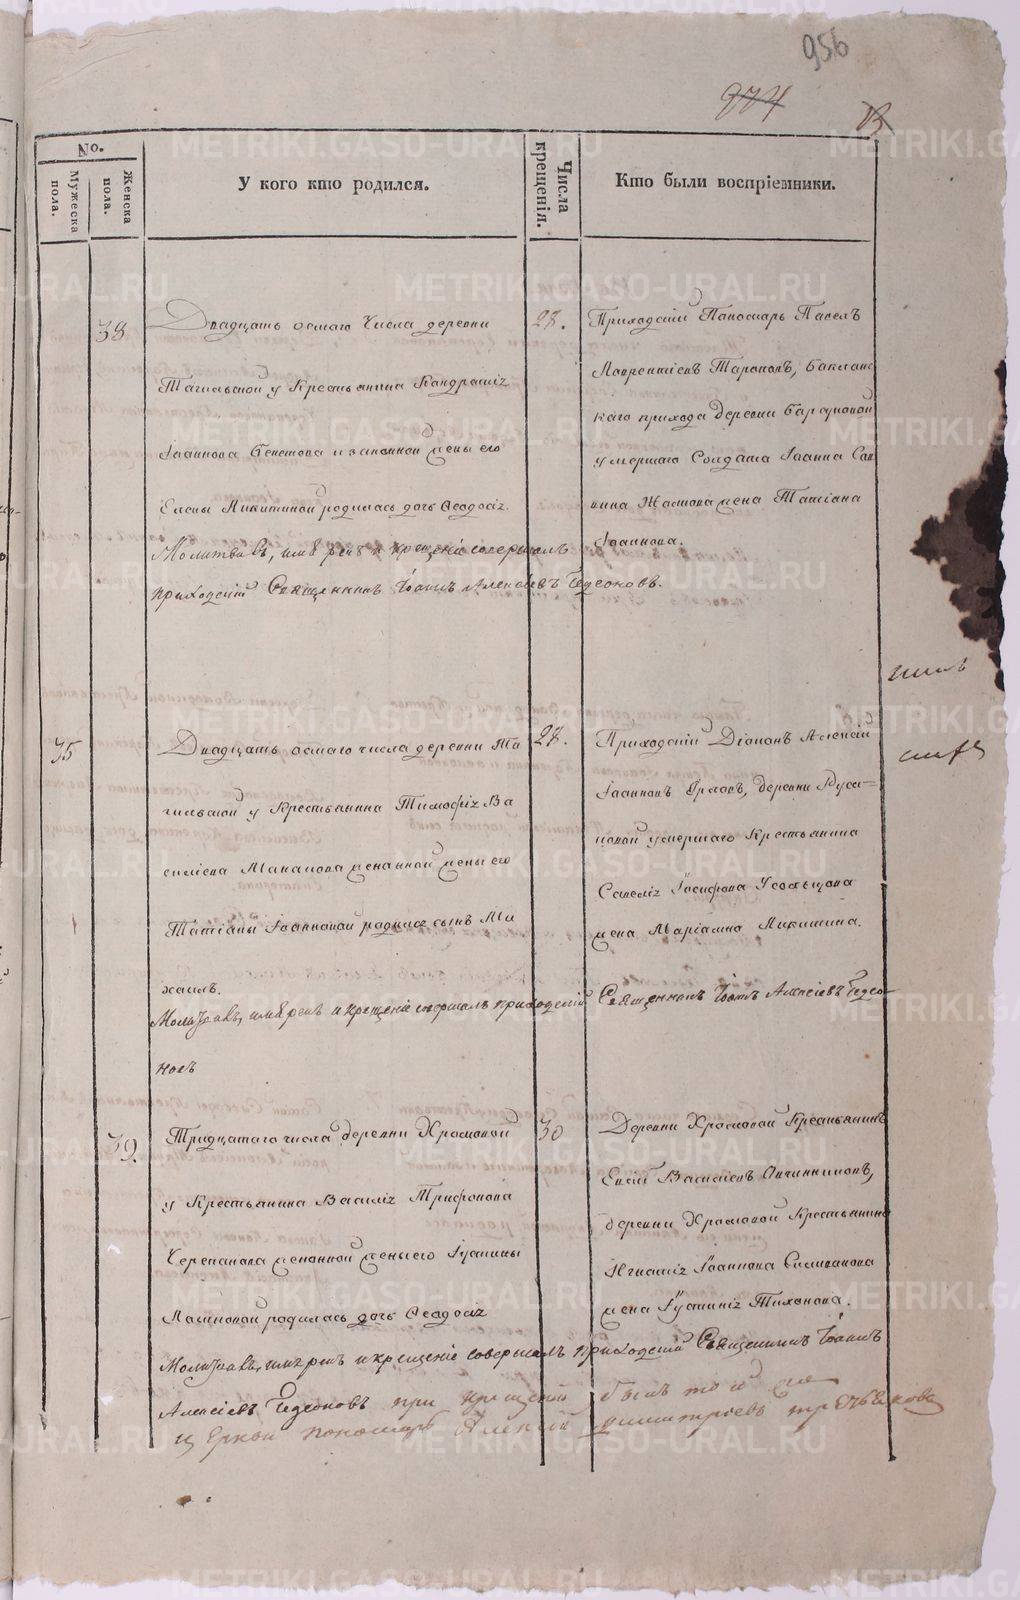 956
974
13
No.
Мужеска пола.
Женска пола.
У кого кто родился.
Числа крещенія.
Кто были воспріемники.
38
Двадцать осмаго Числа деревни
Тагильской у Крестьянина Кандратія
Іоаннова Бенетова и законной жены его
Елены Никитиной родилась дочь Ѳеодосія.
Молитвовъ, имя рекъ и крещеніе совершалъ
приходскій Священникъ Іоаннъ Алексіевъ Гедеоновъ.
28.
Приходскій Паномарь Павелъ
Лаврентіевъ Тороповъ, Баклан
каго прихода деревни
умершаго Солдата Іоанна Сав
вина жена Татіана
Іоаннова.
35
Двадцать осмаго числа деревни Та
гильской у Крестьянина Тимофея Ва
силіева Маканова женанной жены его
Татіаны Іоанновой родился сынъ Ми
хаилъ.
Молитвовъ, имя рекъ и крещеніе совершалъ приходскій Священникъ Іоаннъ Алексіевъ Гедео
новъ
28.
Приходскій Діаконъ Алексій
Іоанновъ Орловъ, деревни Руса
ковой умершаго Крестьянина
Савелія Іосифова Усольцова
жена Маріамна Никитина.
39.
Тридцатаго числа деревни Храмовой
у Крестьянина Василія Трифонова
Черепанова женонной жены его Іустины
родилась дочь Ѳеодосія
Молитвовъ, имя рекъ и крещеніе совершалъ приходскій Священникъ Іоаннъ
Алексіевъ Гедеоновъ при крещеніи былъ той же
церкви пономарь Алексій Димитріевъ Третьяковъ
30
Деревни Храмовой Крестьянинъ
Евсій Василіевъ Овчинниковъ,
деревни Храмовой Крестьянина
Игнатія Іоаннова Селиванова
жена Іустинія Тихонова.
METRIKI.GASO-URAL.RU